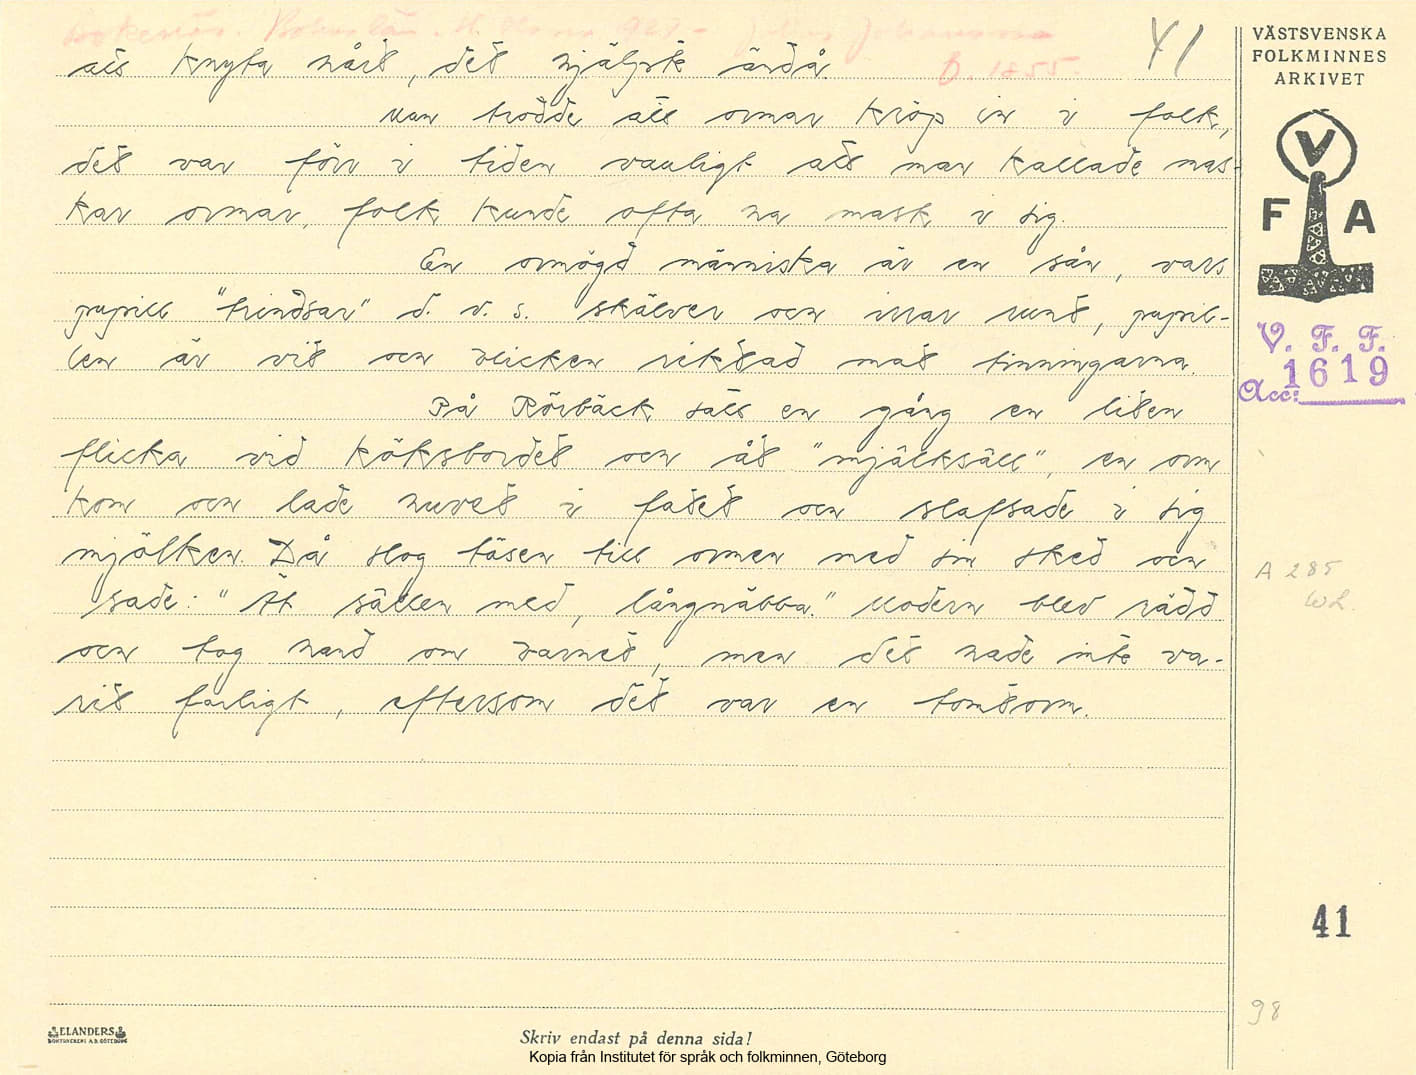 Bokenäs. Bohuslän. 1927 - Johansson
b. 1855.
41
VÄSTSVENSKA
FOLKMINNES
ARKIVET
V
F A
V. F. F.
Acc: 1619
att knyta hårt, det hjälpte ändå.
Man trodde att ormar kröp in i folk,
det var förr i tiden vanligt att man kallade mas-
kar ormar, folk kunde ofta ha mask i sig.
En ormögd människa är en sån, vars
pupill "trindsar" d. v. s. skälver och irrar runt, pupil-
len är vit och blicken riktad mot tinningarna.
På Rörbäck satt en gång en liten
flicka vid köksbordet och åt "mjölksåll", en orm
kom och lade huvet i fatet och slafsade i sig
mjölken. Då slog tösen till ormen med sin sked och
sade: "Ät sållen med, långnäbba." Modern blev rädd
och tog hand om barnet, men det hade inte va-
rit farligt, eftersom det var en tomtorm.
A 285
WL.
41
98
ELANDERS
BOKTRYCKERI A.B. GÖTEBORG
Skriv endast på denna sida!
Kopia från Institutet för språk och folkminnen, Göteborg